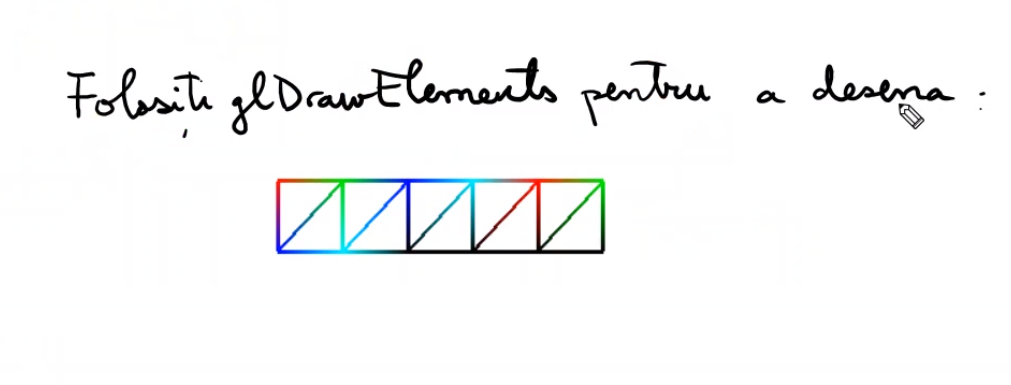 Folosiți glDrawElements pentru a desena :